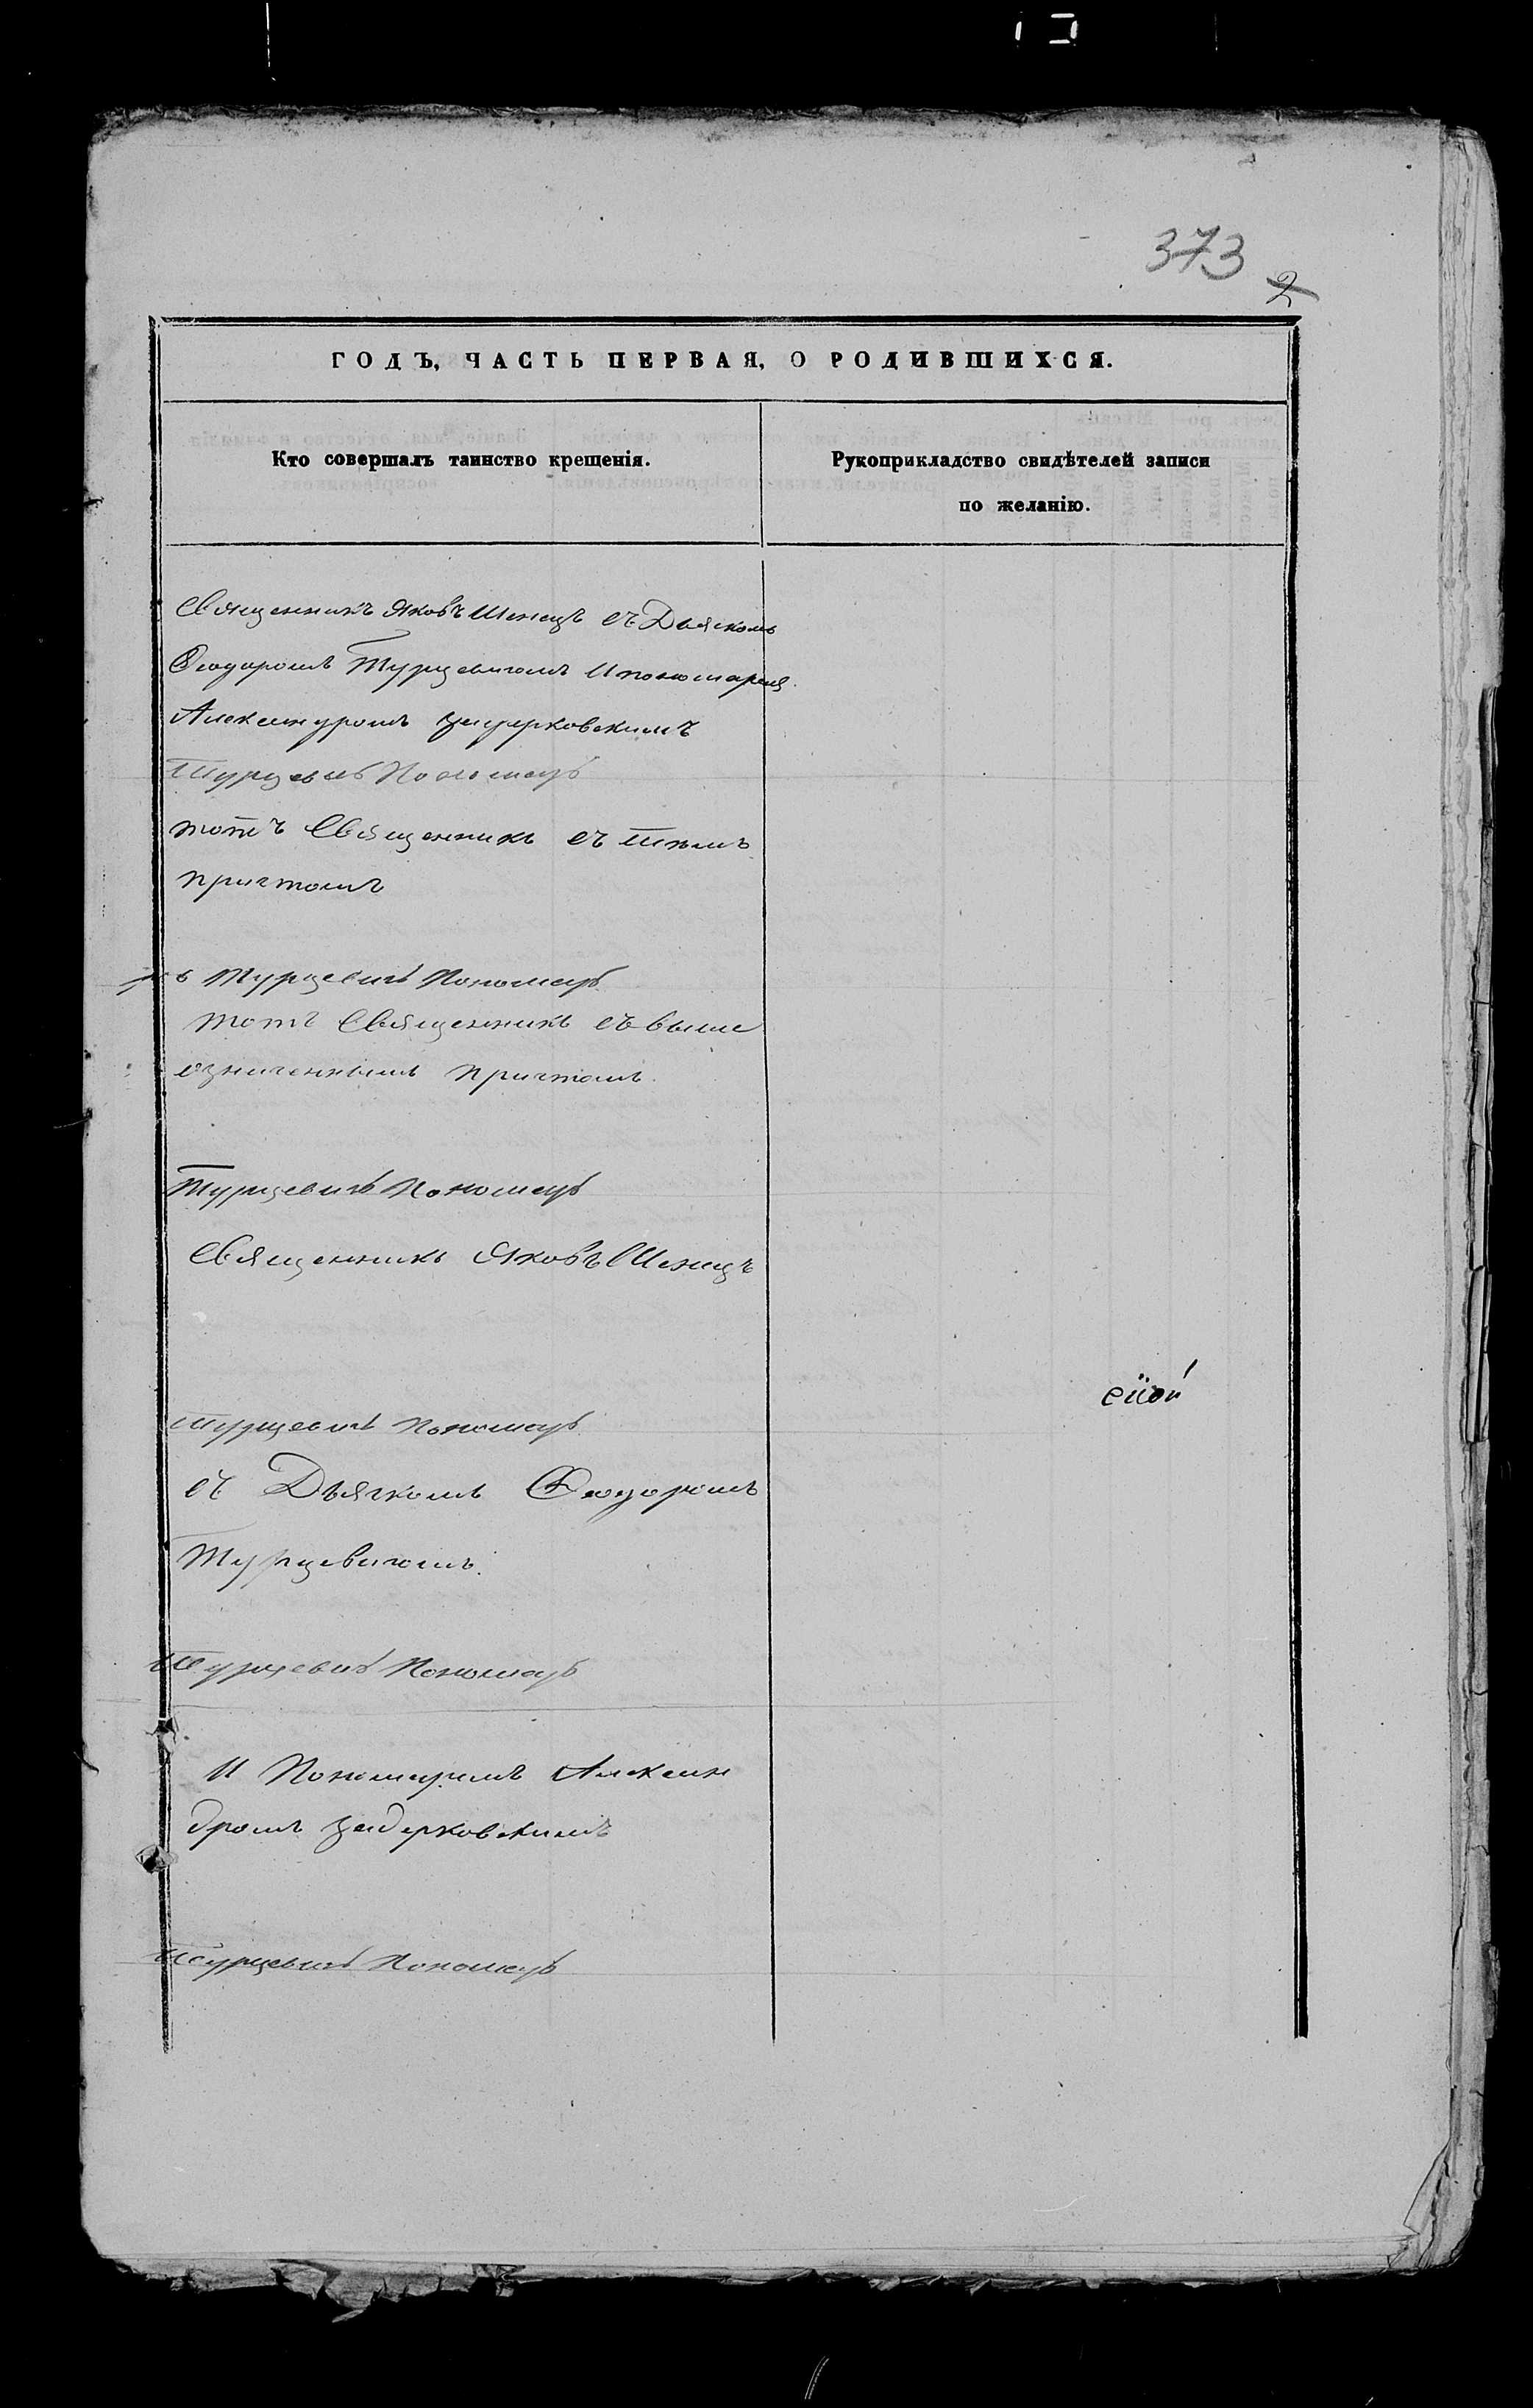 373
2
ГОДЪ, ЧАСТЬ ПЕРВАЯ, О РОДИВШИХСЯ.
Кто совершалъ таинство крещенія.
Рукоприкладство свидѣтелей записи
по желанію.
Священникъ Яковъ Шенецъ съ Дьякомъ
Ѳеодоромъ Турцевичомъ и пономаремъ
Александромъ Задерковскимъ
Турцевичъ Пономарь
тотъ Священникъ съ тѣмъ
причтомъ
Турцевичъ Пономарь
тотъ Священникъ съ выше
означеннымъ причтомъ.
Турцевичъ Пономарь
Священникъ Яковъ Шенецъ
Турцевичъ Пономарь
съ Дьячкомъ Ѳеодоромъ
Турцевичомъ.
Турцевичъ Пономарь
и Пономаремъ Алексан
дромъ Задерковскимъ
Турцевичъ Пономарь